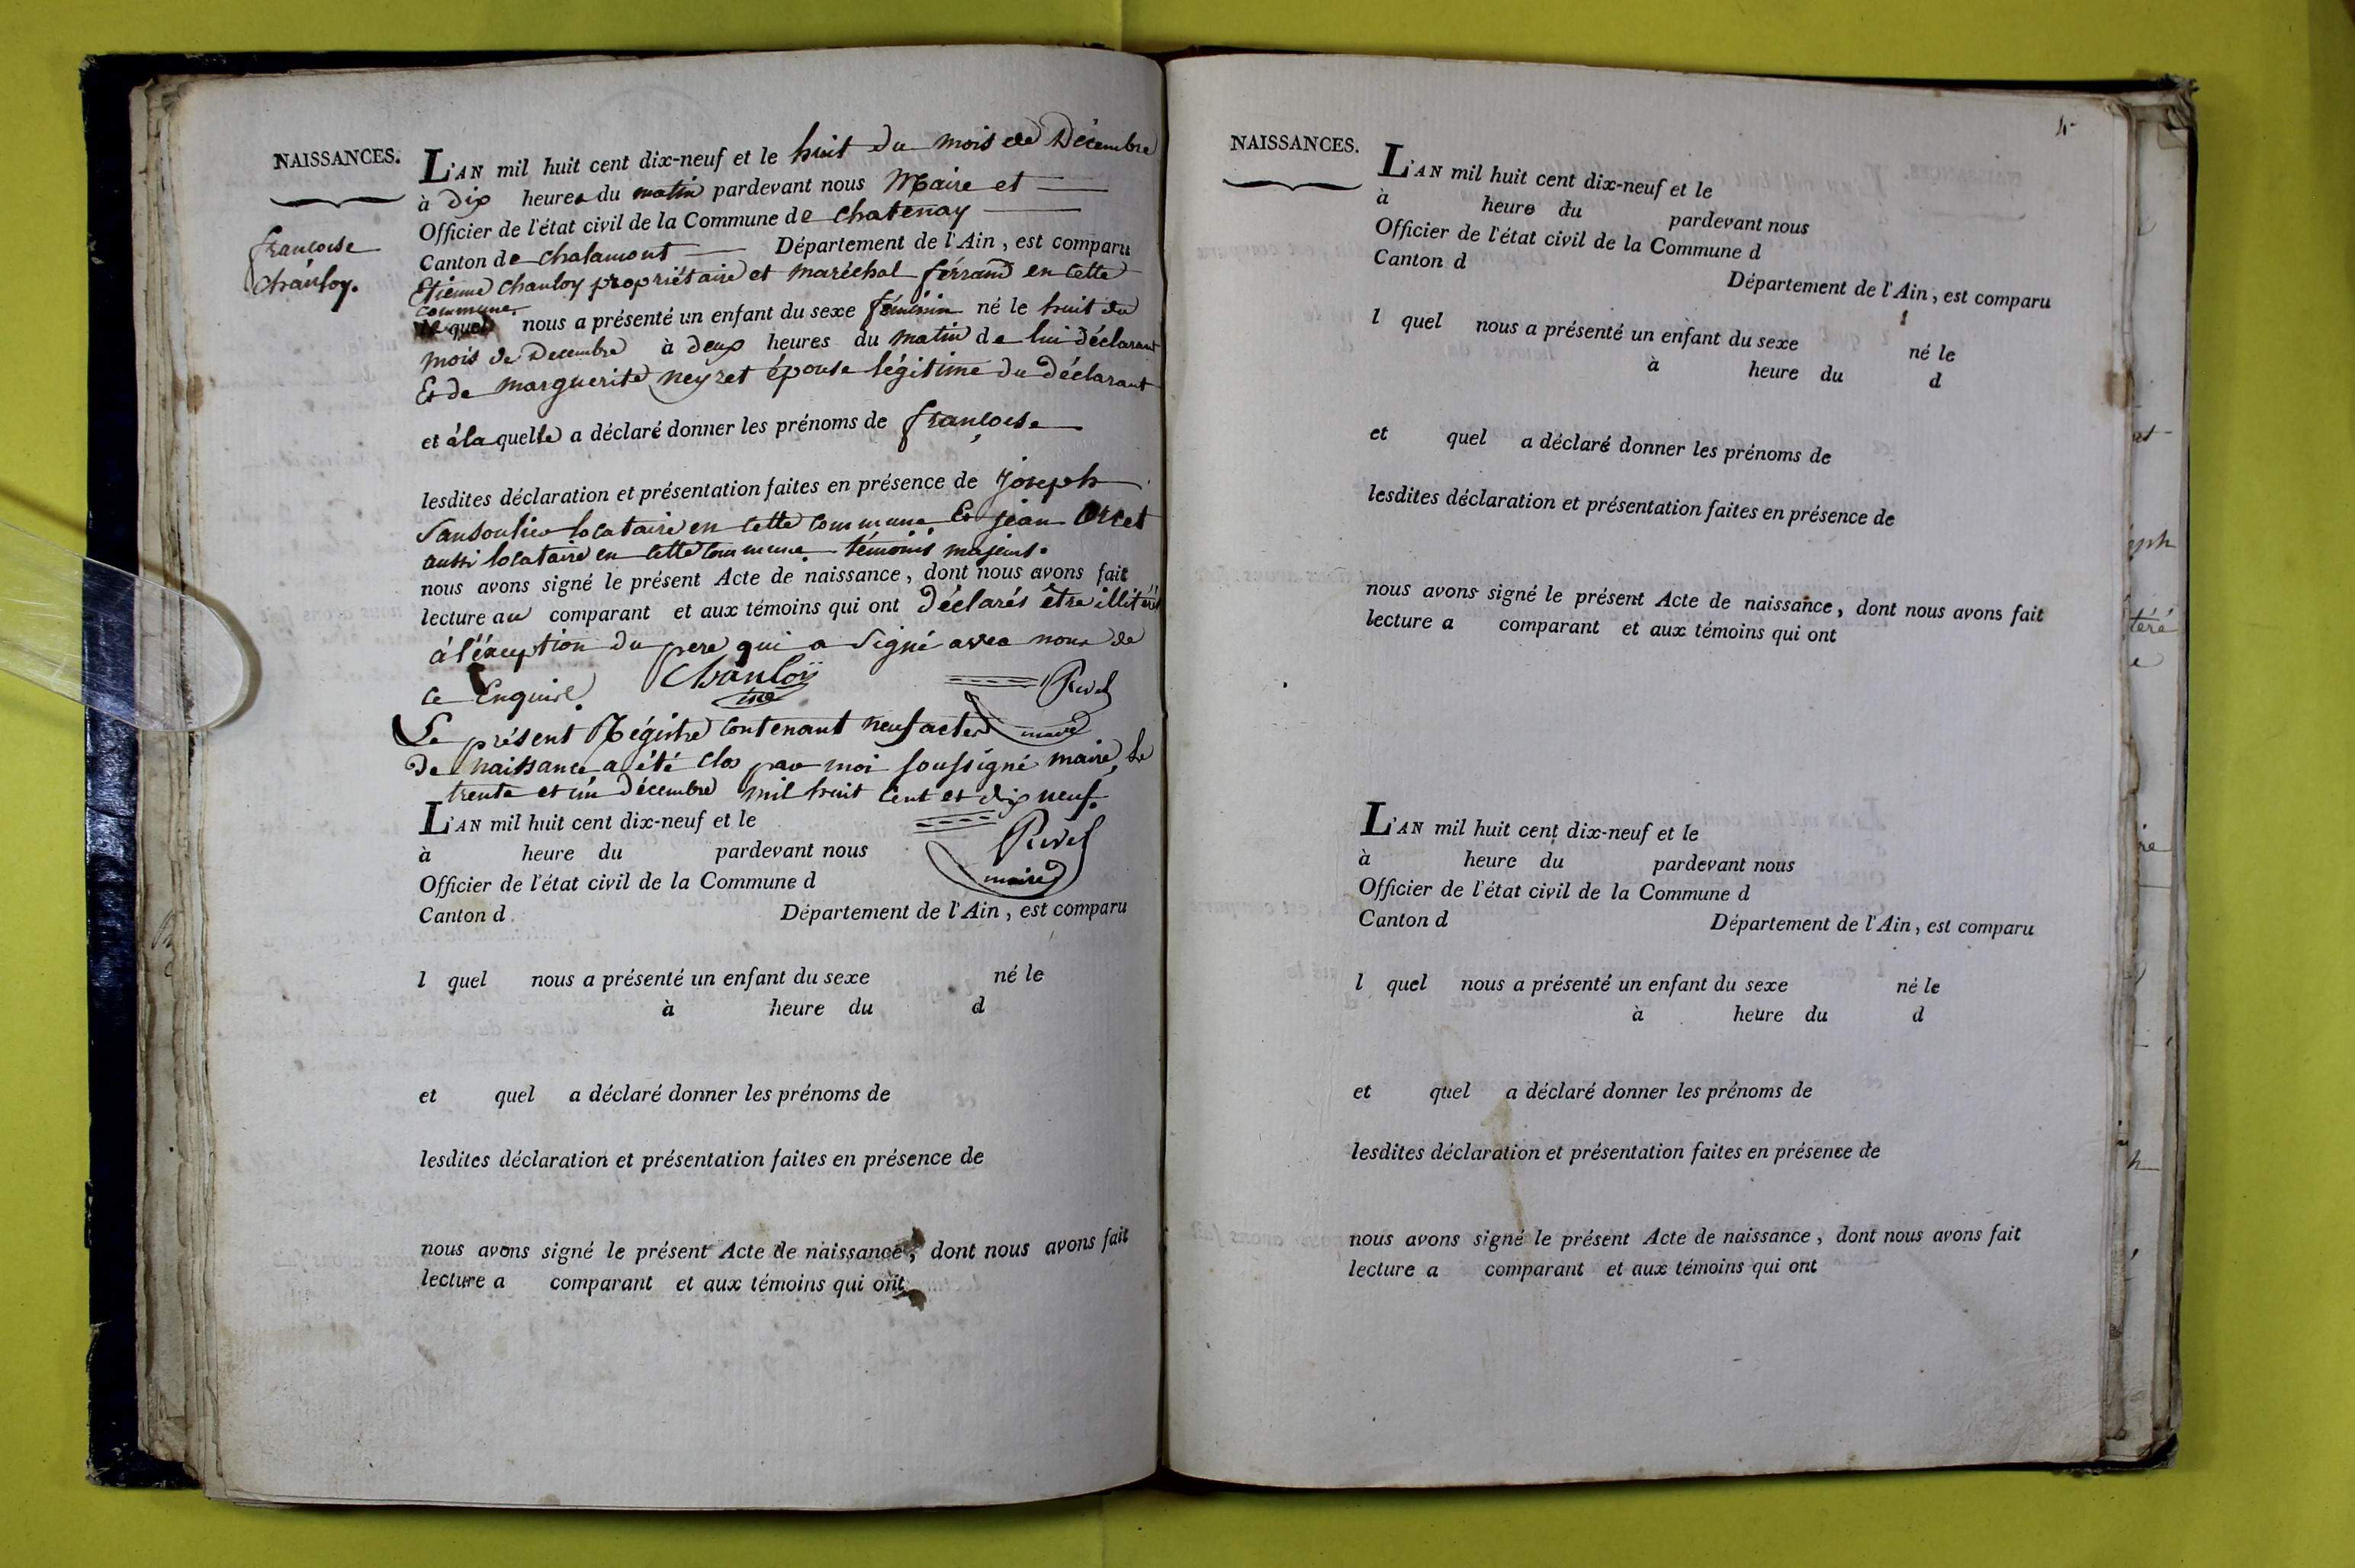 NAISSANCES.
françoise
Chanloy.
L'AN mil huit cent dix-neuf et le huit du mois de Décembre
à dix heures du matin pardevant nous Maire et
Officier de l'état civil de la Commune de chatenay
Canton de chalamont Département de l'Ain, est comparu
Etienne Chanloy propriétaire et maréchal férrand en cette
commune.
le quel nous a présenté un enfant du sexe féminin né le huit du
mois de Decembre à deux heures du matin de lui déclarant
Et de marguerite neyret épouse légitime du déclarant
et à la quelle a déclaré donner les prénoms de françoise
lesdites déclaration et présentation faites en présence de joseph
locataire en cette commune Et jean Orset
aussi locataire en cette commune témoins majeurs.
nous avons signé le présent Acte de naissance, dont nous avons fait
lecture au comparant et aux témoins qui ont Déclarés être illitéré
à l'éxception du pere qui a Signé avec nous de
ce Enquire. Chanloÿ Rivel
maire
Le présent Régistre contenant neuf actes
De naissance a été clos par moi soussigné maire, le
trente et un décembre mil huit cent et dix neuf.
Rivel
maire
L'AN mil huit cent dix-neuf et le
à heure du pardevant nous
Officier de l'état civil de la Commune d
Canton d Département de l'Ain, est comparu
l quel nous a présenté un enfant du sexe né le
à heure du d
et quel a déclaré donner les prénoms de
lesdites déclaration et présentation faites en présence de
nous avons signé le présent Acte de naissance, dont nous avons fait
lecture a comparant et aux témoins qui ont
NAISSANCES.
L'AN mil huit cent dix-neuf et le
à heure du pardevant nous
Officier de l'état civil de la Commune d
Canton d
Département de l'Ain, est comparu
l quel nous a présenté un enfant du sexe né le
à heure du d
et quel a déclaré donner les prénoms de
lesdites déclaration et présentation faites en présence de
nous avons signé le présent Acte de naissance, dont nous avons fait
lecture a comparant et aux témoins qui ont
L'AN mil huit cent dix-neuf et le
à heure du pardevant nous
Officier de l'état civil de la Commune d
Canton d Département de l'Ain, est comparu
l quel nous a présenté un enfant du sexe né le
à heure du d
et quel a déclaré donner les prénoms de
lesdites déclaration et présentation faites en présence de
nous avons signé le présent Acte de naissance, dont nous avons fait
lecture a comparant et aux témoins qui ont